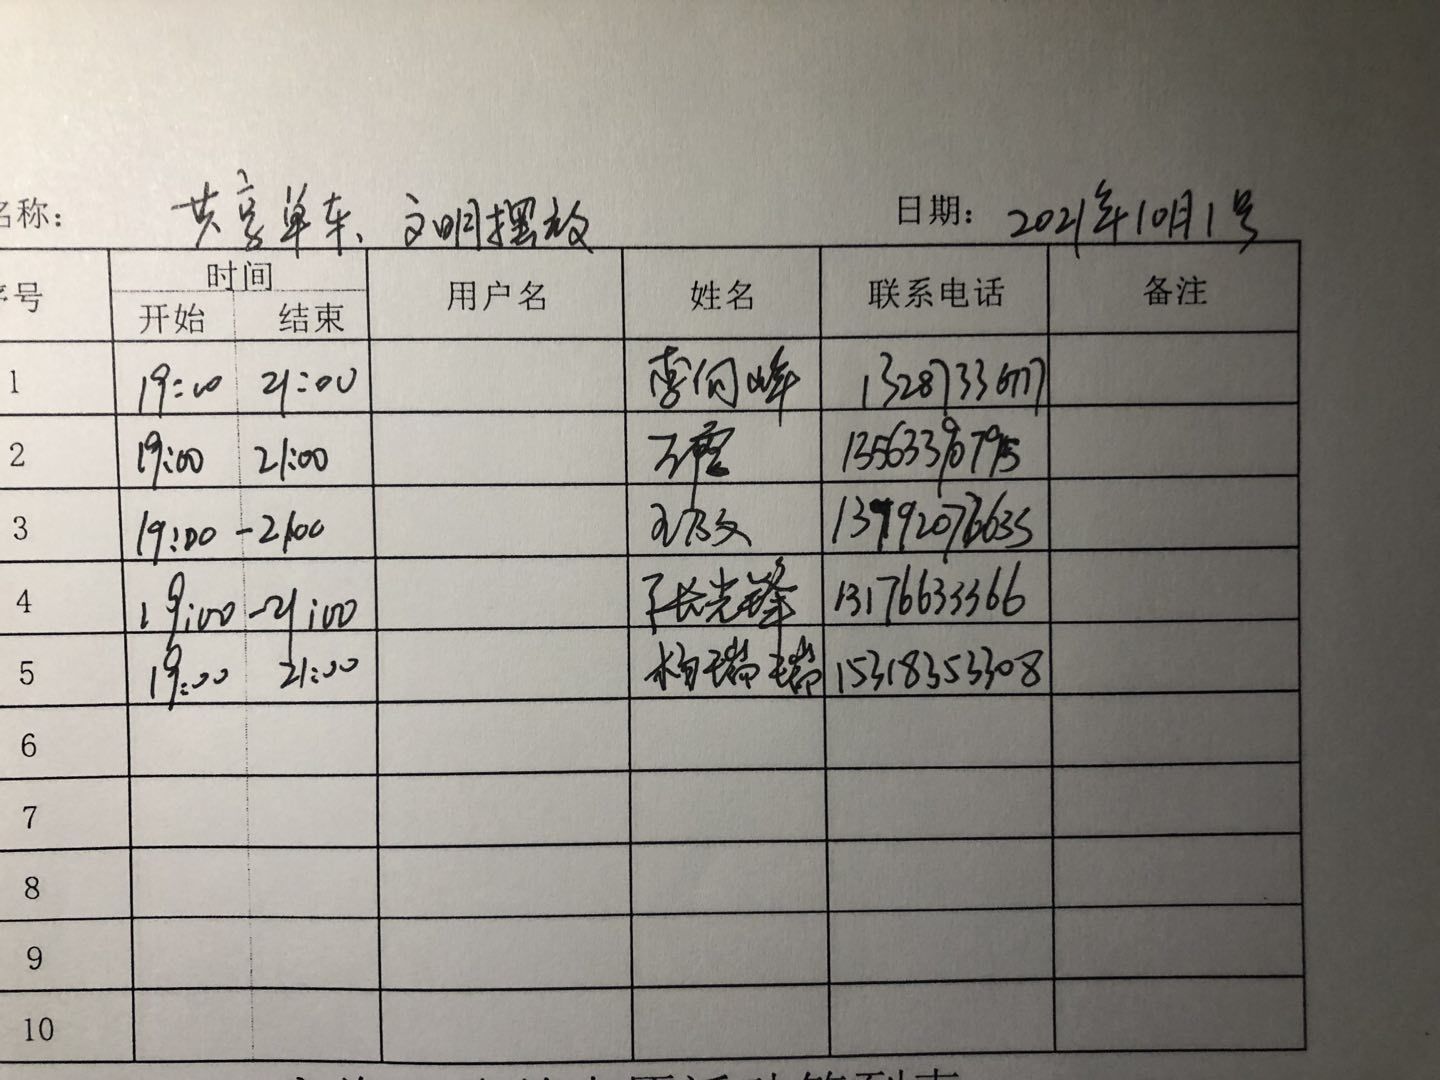 名称： 共享单车、文明摆放 日期： 2021年10月1号
序号 时间 用户名 姓名 联系电话 备注
开始 结束
1 19:00 21:00 李向峰
2 19:00 21:00 13563390795
3 19:00 -2100
4 19:00 -21:00 张光锋 13176633366
5 19:00 21:00 杨瑞瑞 15318353308
6
7
8
9
10